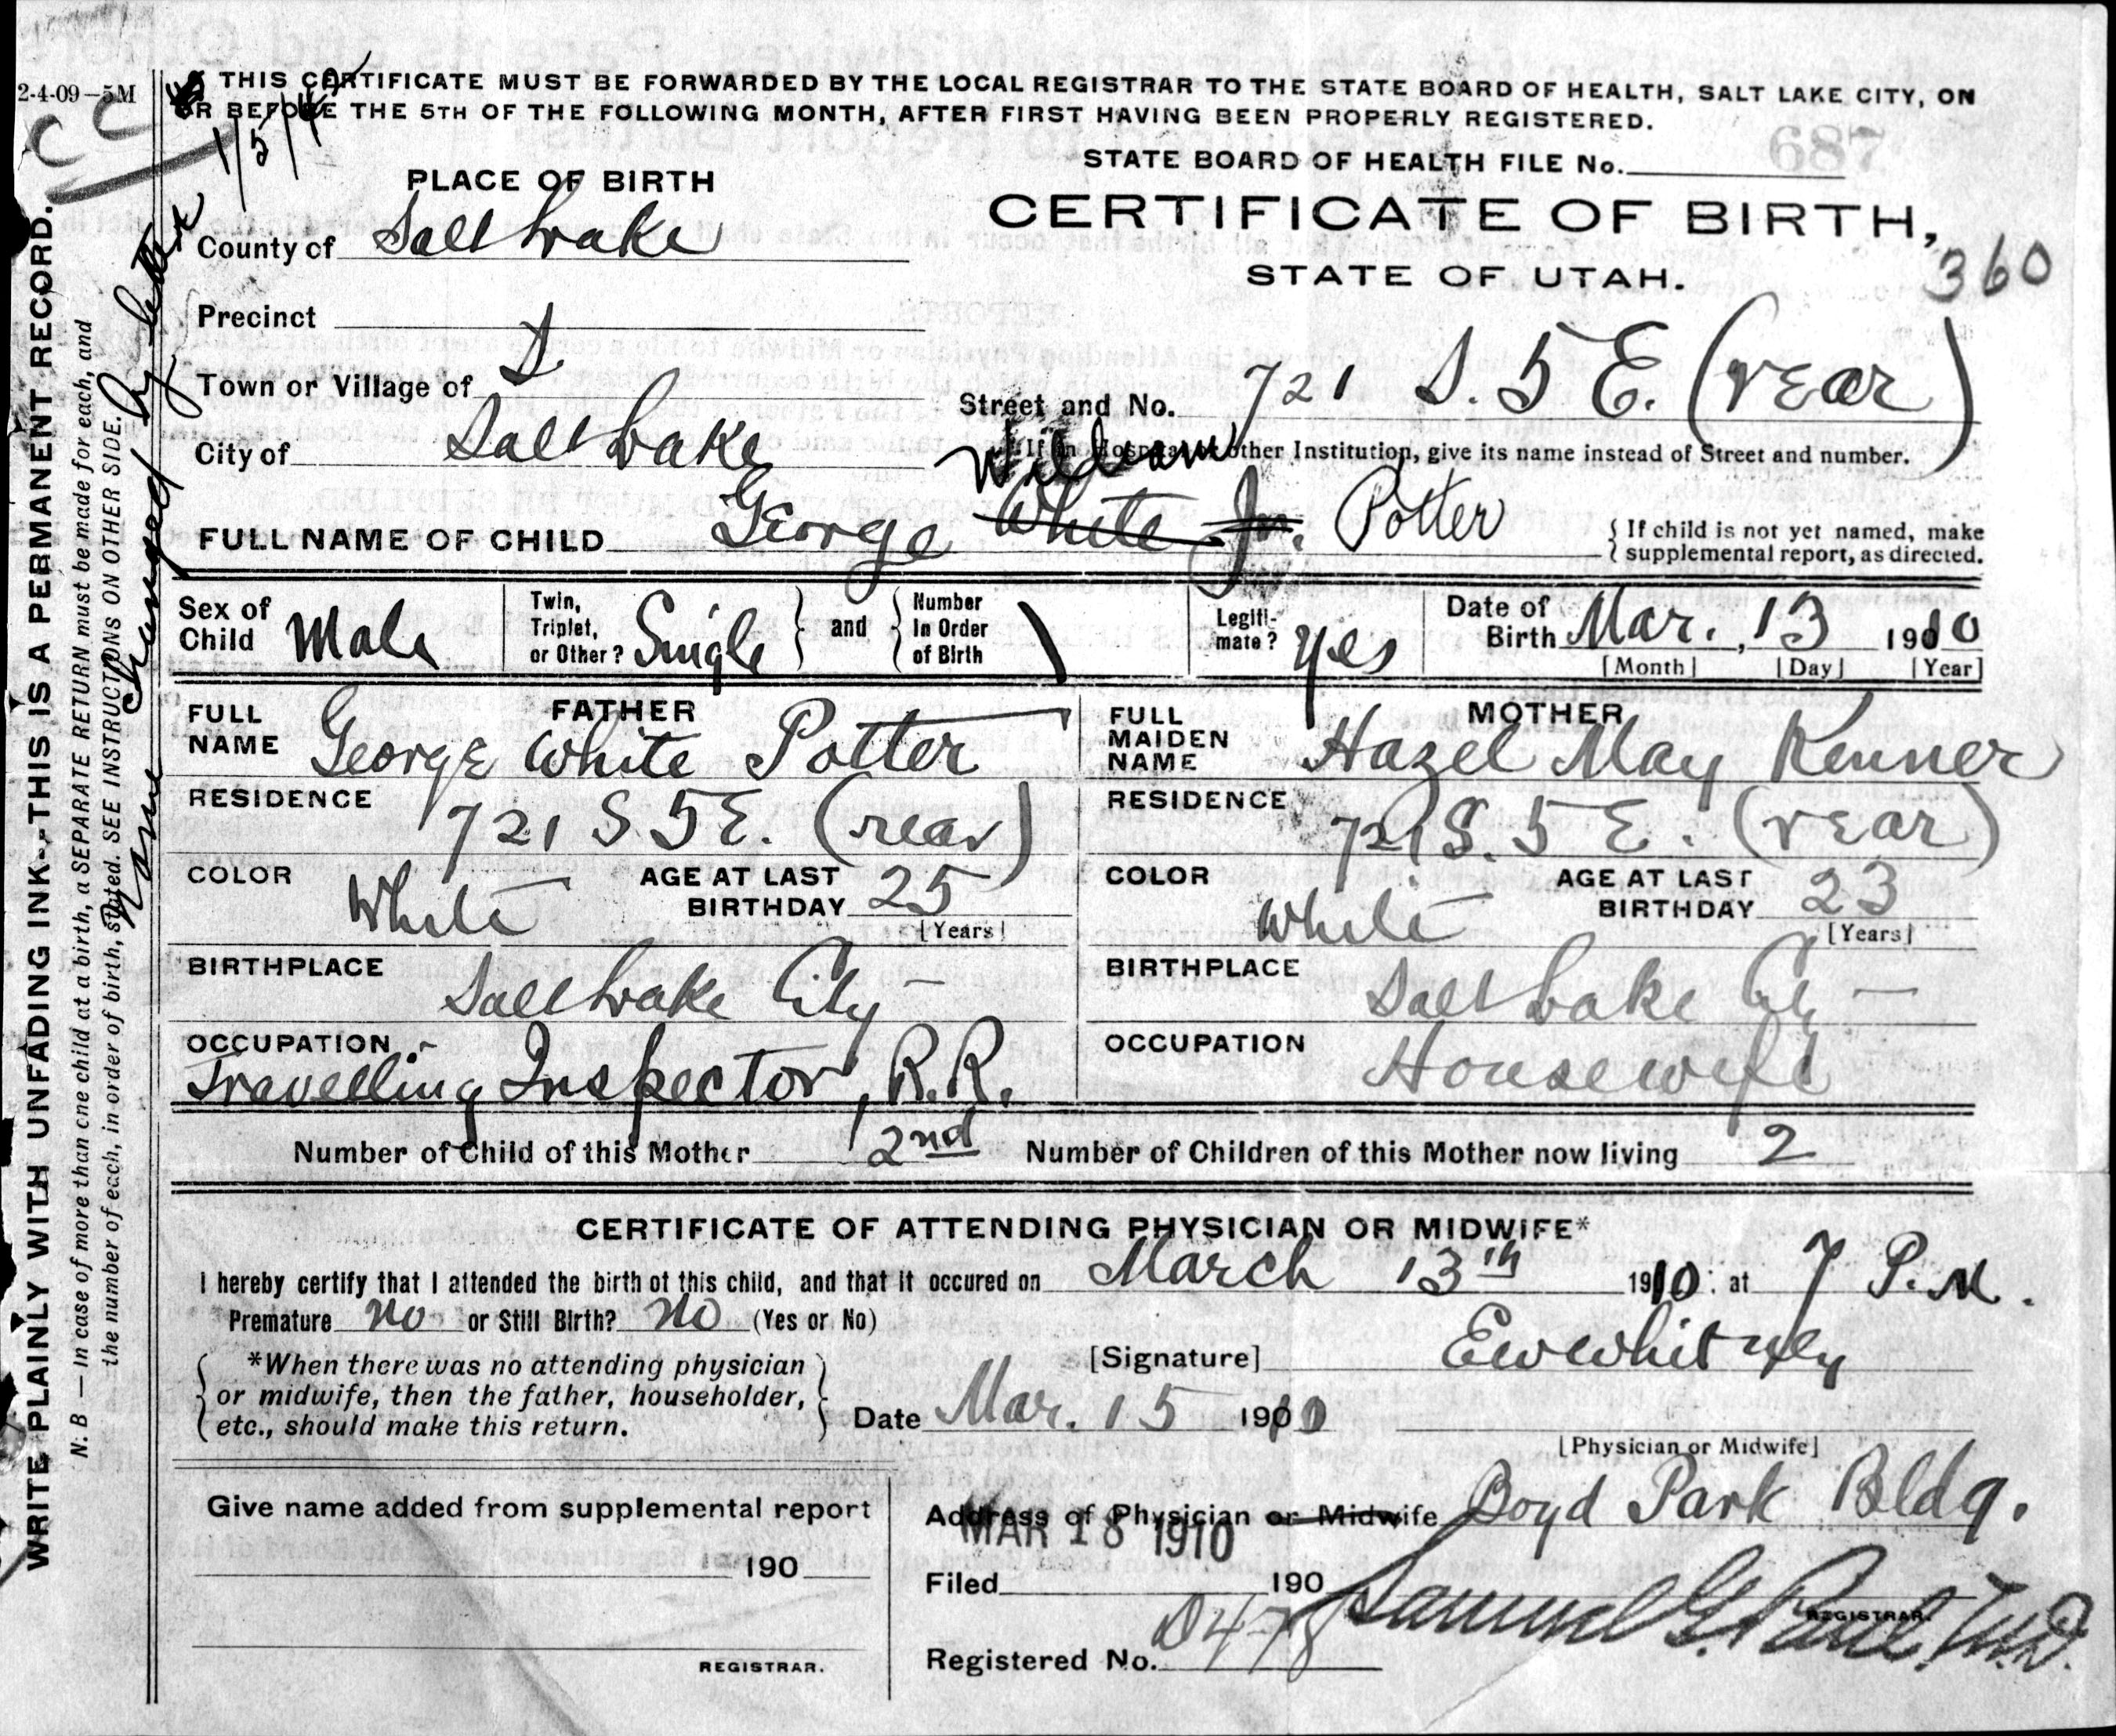 2-4-09—5M
CC
THIS CERTIFICATE MUST BE FORWARDED BY THE LOCAL REGISTRAR TO THE STATE BOARD OF HEALTH, SALT LAKE CITY, ON
OR BEFORE THE 5TH OF THE FOLLOWING MONTH, AFTER FIRST HAVING BEEN PROPERLY REGISTERED.
STATE BOARD OF HEALTH FILE No. 687
PLACE OF BIRTH
CERTIFICATE OF BIRTH,
STATE OF UTAH.
360
County of Salt Lake
Precinct
Town or Village of
Street and No. 721 S. 5 E. (rear)
City of Salt Lake
If in Hospital or other Institution, give its name instead of Street and number.
Wildson
FULL NAME OF CHILD George White Jr. Potter
{ If child is not yet named, make
supplemental report, as directed.
Sex of Child Male
Twin, Triplet, or Other? Single } and { Number In Order of Birth
Legiti-mate? Yes
Date of Birth Mar., 13 1910
[Month] [Day] [Year]
FATHER
FULL NAME George White Potter
RESIDENCE 721 S 5 E. (rear)
COLOR White AGE AT LAST BIRTHDAY 25
[Years]
BIRTHPLACE Salt Lake City
OCCUPATION Travelling Inspector, R.R.
MOTHER
FULL MAIDEN NAME Hazel May Kenner
RESIDENCE 721 S. 5 E. (rear)
COLOR White AGE AT LAST BIRTHDAY 23
[Years]
BIRTHPLACE Salt Lake City
OCCUPATION Housewife
Number of Child of this Mother 2nd Number of Children of this Mother now living 2
CERTIFICATE OF ATTENDING PHYSICIAN OR MIDWIFE*
I hereby certify that I attended the birth of this child, and that it occured on March 13th 1910: at 7 P.M.
Premature no or Still Birth? no (Yes or No)
*When there was no attending physician
or midwife, then the father, householder,
etc., should make this return.
[Signature] E W Whitney
Date Mar. 15 1910
[Physician or Midwife]
Give name added from supplemental report
190
REGISTRAR.
Address of Physician or Midwife Boyd Park Bldg.
MAR 18 1910
Filed 190
Samuel G. Paul, M.D.
REGISTRAR.
Registered No. D478
WRITE PLAINLY WITH UNFADING INK--THIS IS A PERMANENT RECORD.
N. B — In case of more than one child at a birth, a SEPARATE RETURN must be made for each, and
the number of each, in order of birth, stated. SEE INSTRUCTIONS ON OTHER SIDE.
Name changed by letter